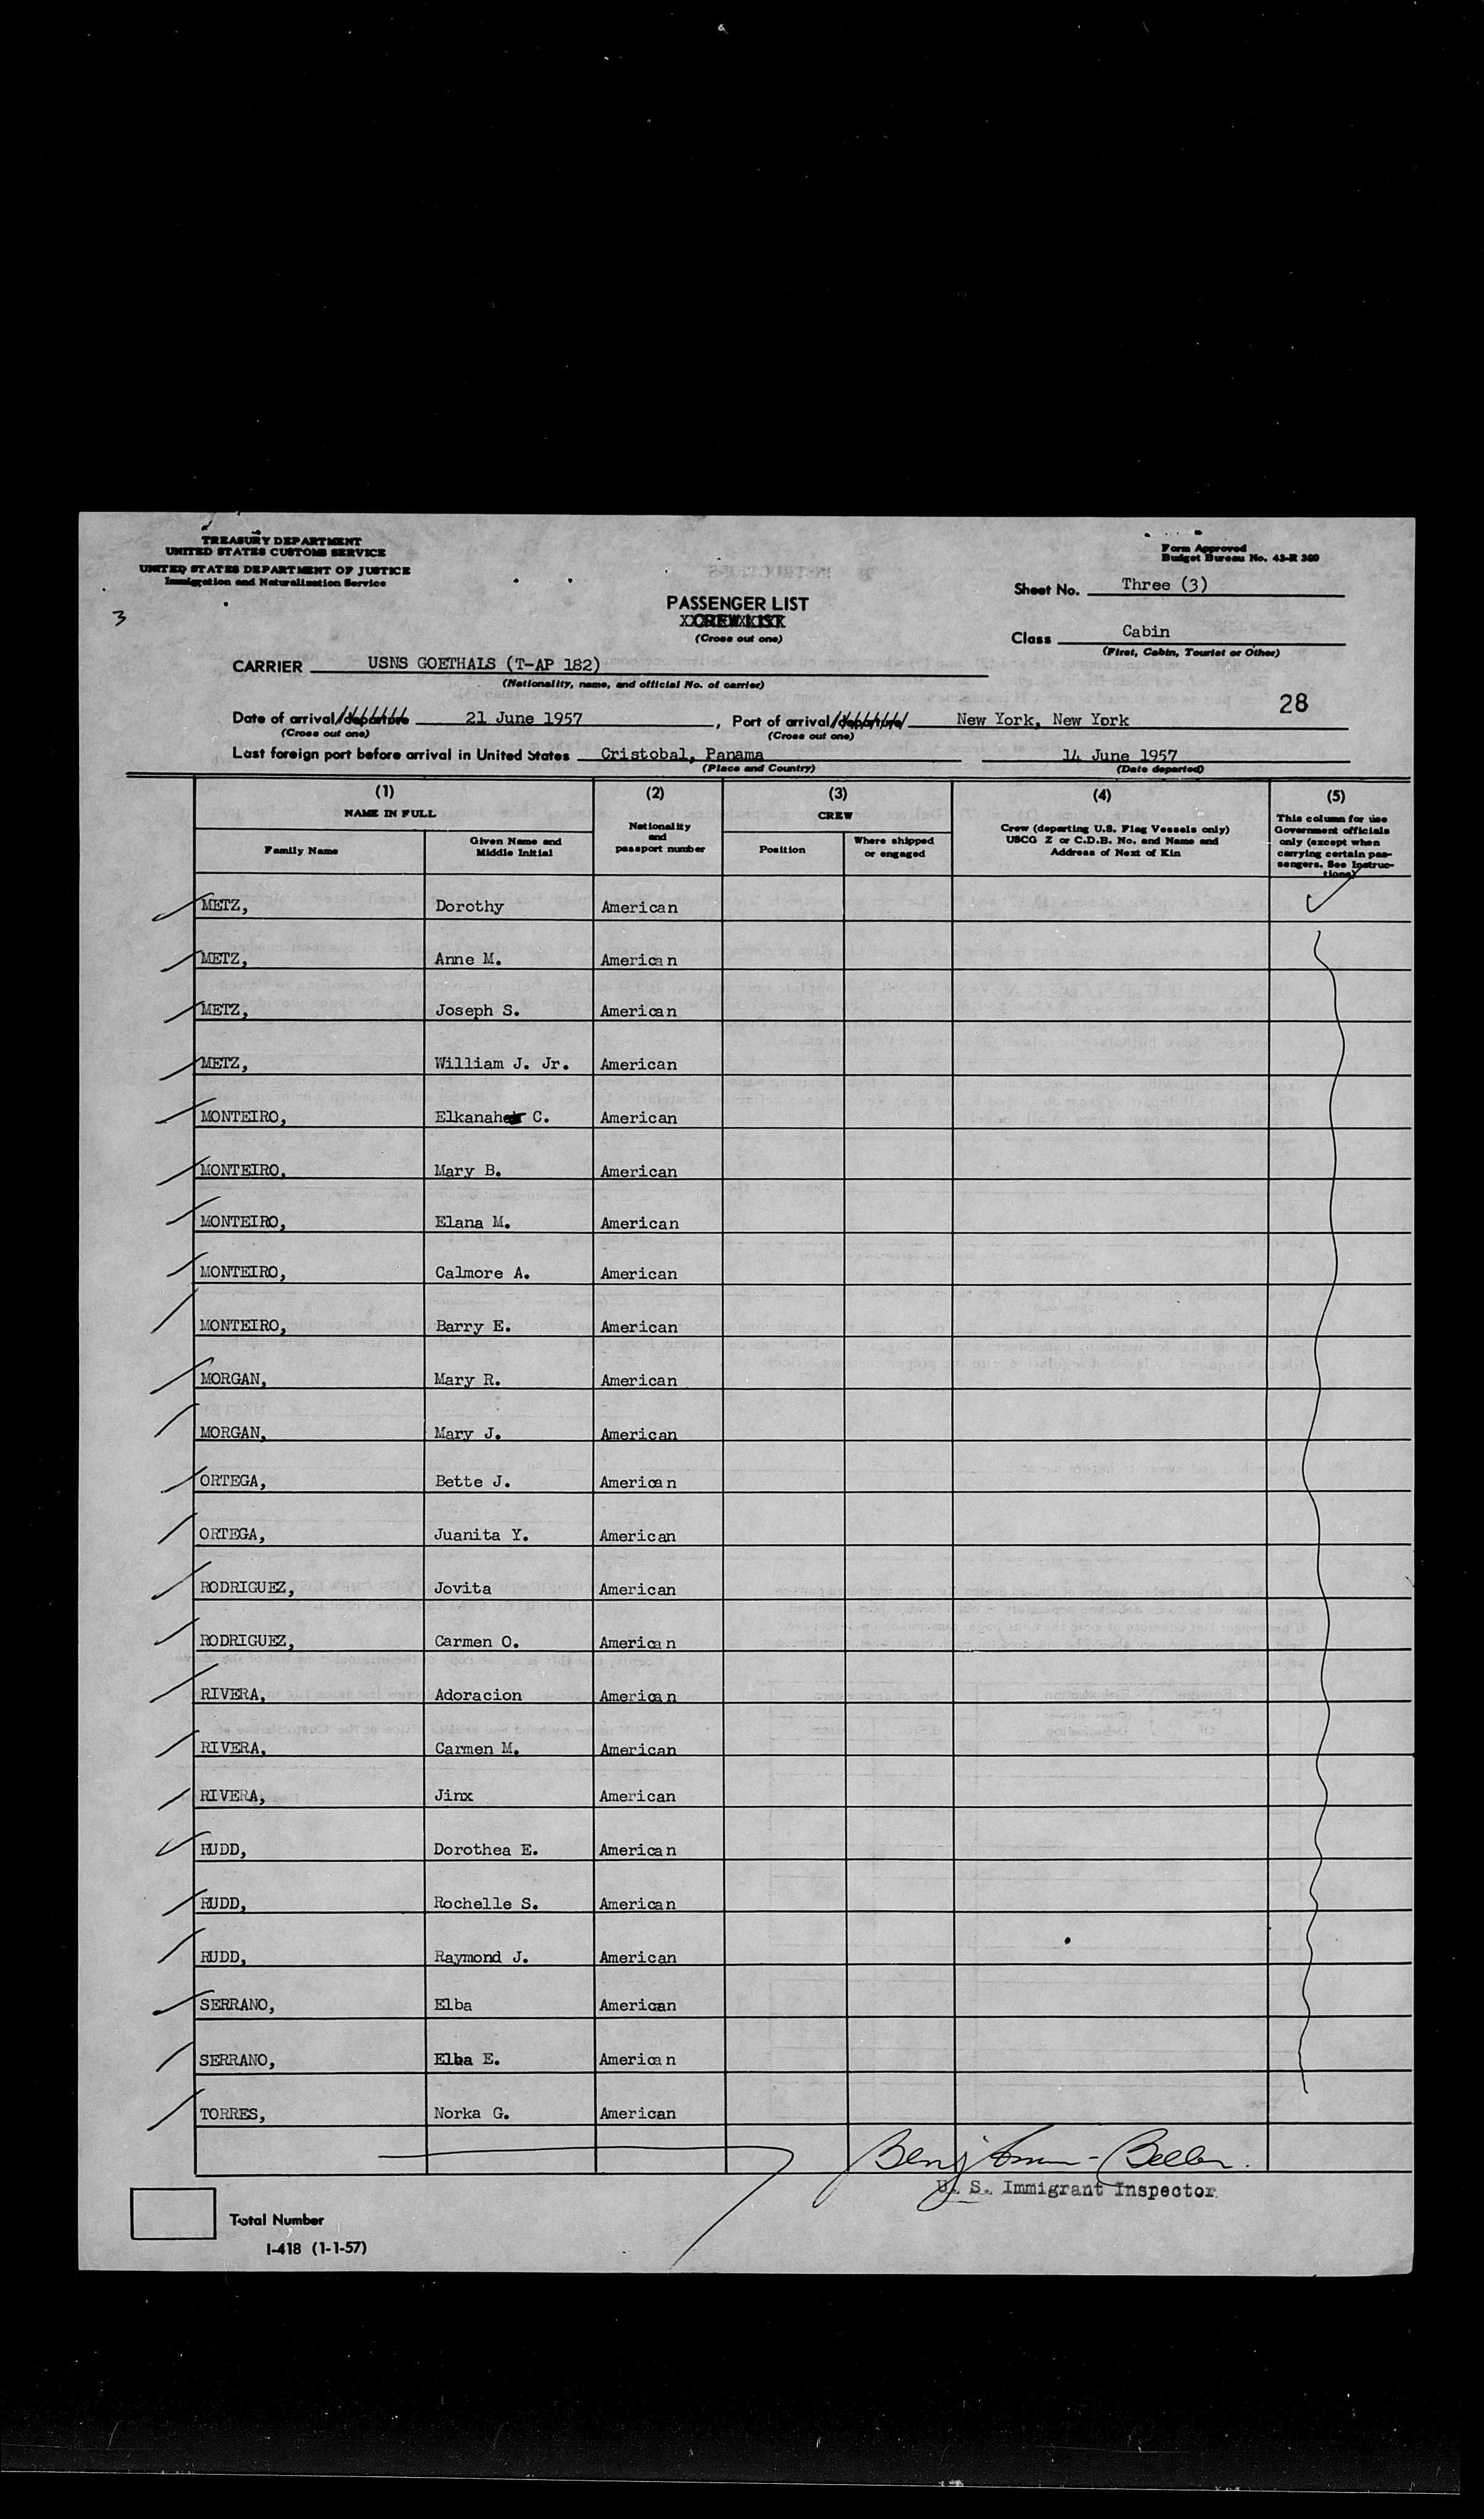 TREASURY DEPARTMENT
UNITED STATES CUSTOMS SERVICE
UNITED STATES DEPARTMENT OF JUSTICE
Immigration and Naturalization Service
Form Approved
Budget Bureau No. 43-R 380
3
PASSENGER LIST
CREW LIST
(Cross out one)
Sheet No. Three (3)
Class Cabin
(First, Cabin, Tourist or Other)
CARRIER USNS GOETHALS (T-AP 182)
(Nationality, name, and official No. of carrier)
28
Date of arrival/departure 21 June 1957, Port of arrival/departure New York, New York
(Cross out one) (Cross out one)
Last foreign port before arrival in United States Cristobal, Panama 14 June 1957
(Place and Country) (Date departed)
(1) NAME IN FULL
Family Name
Given Name and Middle Initial
(2) Nationality and passport number
(3) CREW
Position
Where shipped or engaged
(4) Crew (departing U.S. Flag Vessels only) USCG Z or C.D.B. No. and Name and Address of Next of Kin
(5) This column for use Government officials only (except when carrying certain passengers. See Instructions)
METZ, Dorothy American
METZ, Anne M. American
METZ, Joseph S. American
METZ, William J. Jr. American
MONTEIRO, Elkanah C. American
MONTEIRO, Mary B. American
MONTEIRO, Elana M. American
MONTEIRO, Calmore A. American
MONTEIRO, Barry E. American
MORGAN, Mary R. American
MORGAN, Mary J. American
ORTEGA, Bette J. American
ORTEGA, Juanita Y. American
RODRIGUEZ, Jovita American
RODRIGUEZ, Carmen O. American
RIVERA, Adoracion American
RIVERA, Carmen M. American
RIVERA, Jinx American
RUDD, Dorothea E. American
RUDD, Rochelle S. American
RUDD, Raymond J. American
SERRANO, Elba American
SERRANO, Elba E. American
TORRES, Norka G. American
Benjamin Beller
U. S. Immigrant Inspector
Total Number
I-418 (1-1-57)